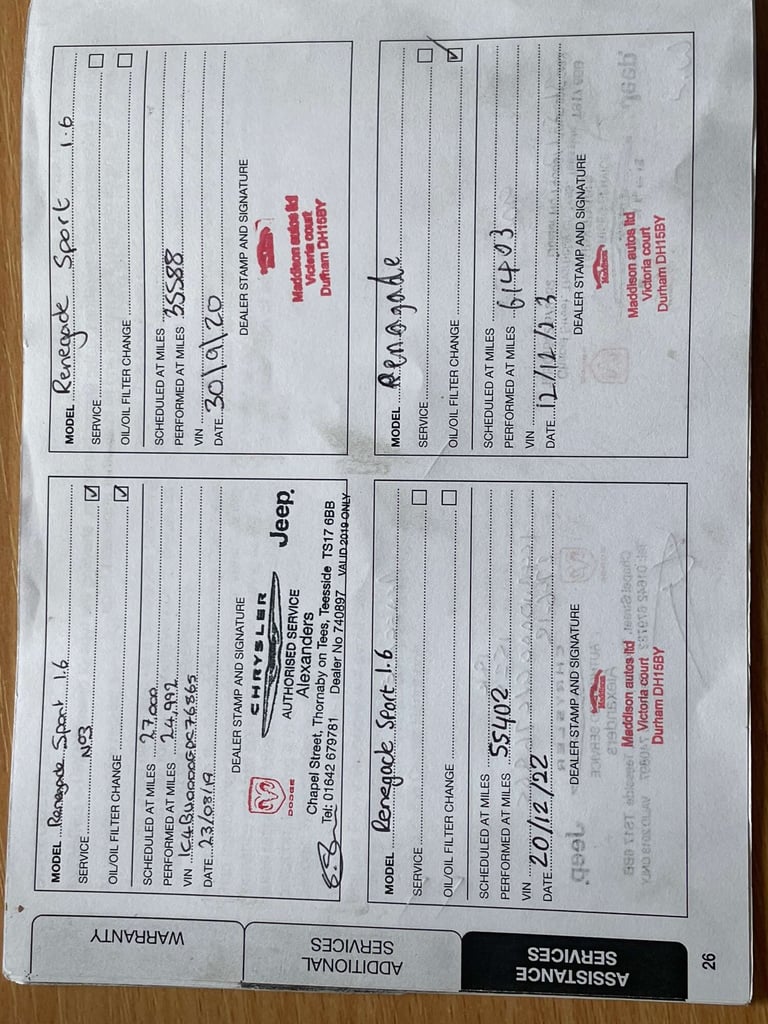 MODEL Renegade Sport 1.6
SERVICE Nº3
OIL/OIL FILTER CHANGE
SCHEDULED AT MILES 27,000
PERFORMED AT MILES 24,992
VIN
DATE 23/08/19
DEALER STAMP AND SIGNATURE
DODGE
CHRYSLER
Jeep.
AUTHORISED SERVICE
Alexanders
Chapel Street, Thornaby on Tees, Teesside TS17 6BB
Tel: 01642 679781 Dealer No 740897 VALID 2019 ONLY
MODEL Renegade Sport 1.6
SERVICE
OIL/OIL FILTER CHANGE
SCHEDULED AT MILES
PERFORMED AT MILES 35588
VIN
DATE 30/9/20
DEALER STAMP AND SIGNATURE
Maddison autos ltd
Victoria court
Durham DH15BY
MODEL Renegade Sport 1.6
SERVICE
OIL/OIL FILTER CHANGE
SCHEDULED AT MILES
PERFORMED AT MILES 55402
VIN
DATE 20/12/22
DEALER STAMP AND SIGNATURE
Maddison autos ltd
Victoria court
Durham DH15BY
MODEL Renegade
SERVICE
OIL/OIL FILTER CHANGE
SCHEDULED AT MILES
PERFORMED AT MILES 61403
VIN
DATE
DEALER STAMP AND SIGNATURE
Maddison autos ltd
Victoria court
Durham DH15BY
WARRANTY
ADDITIONAL
SERVICES
ASSISTANCE
SERVICES
26